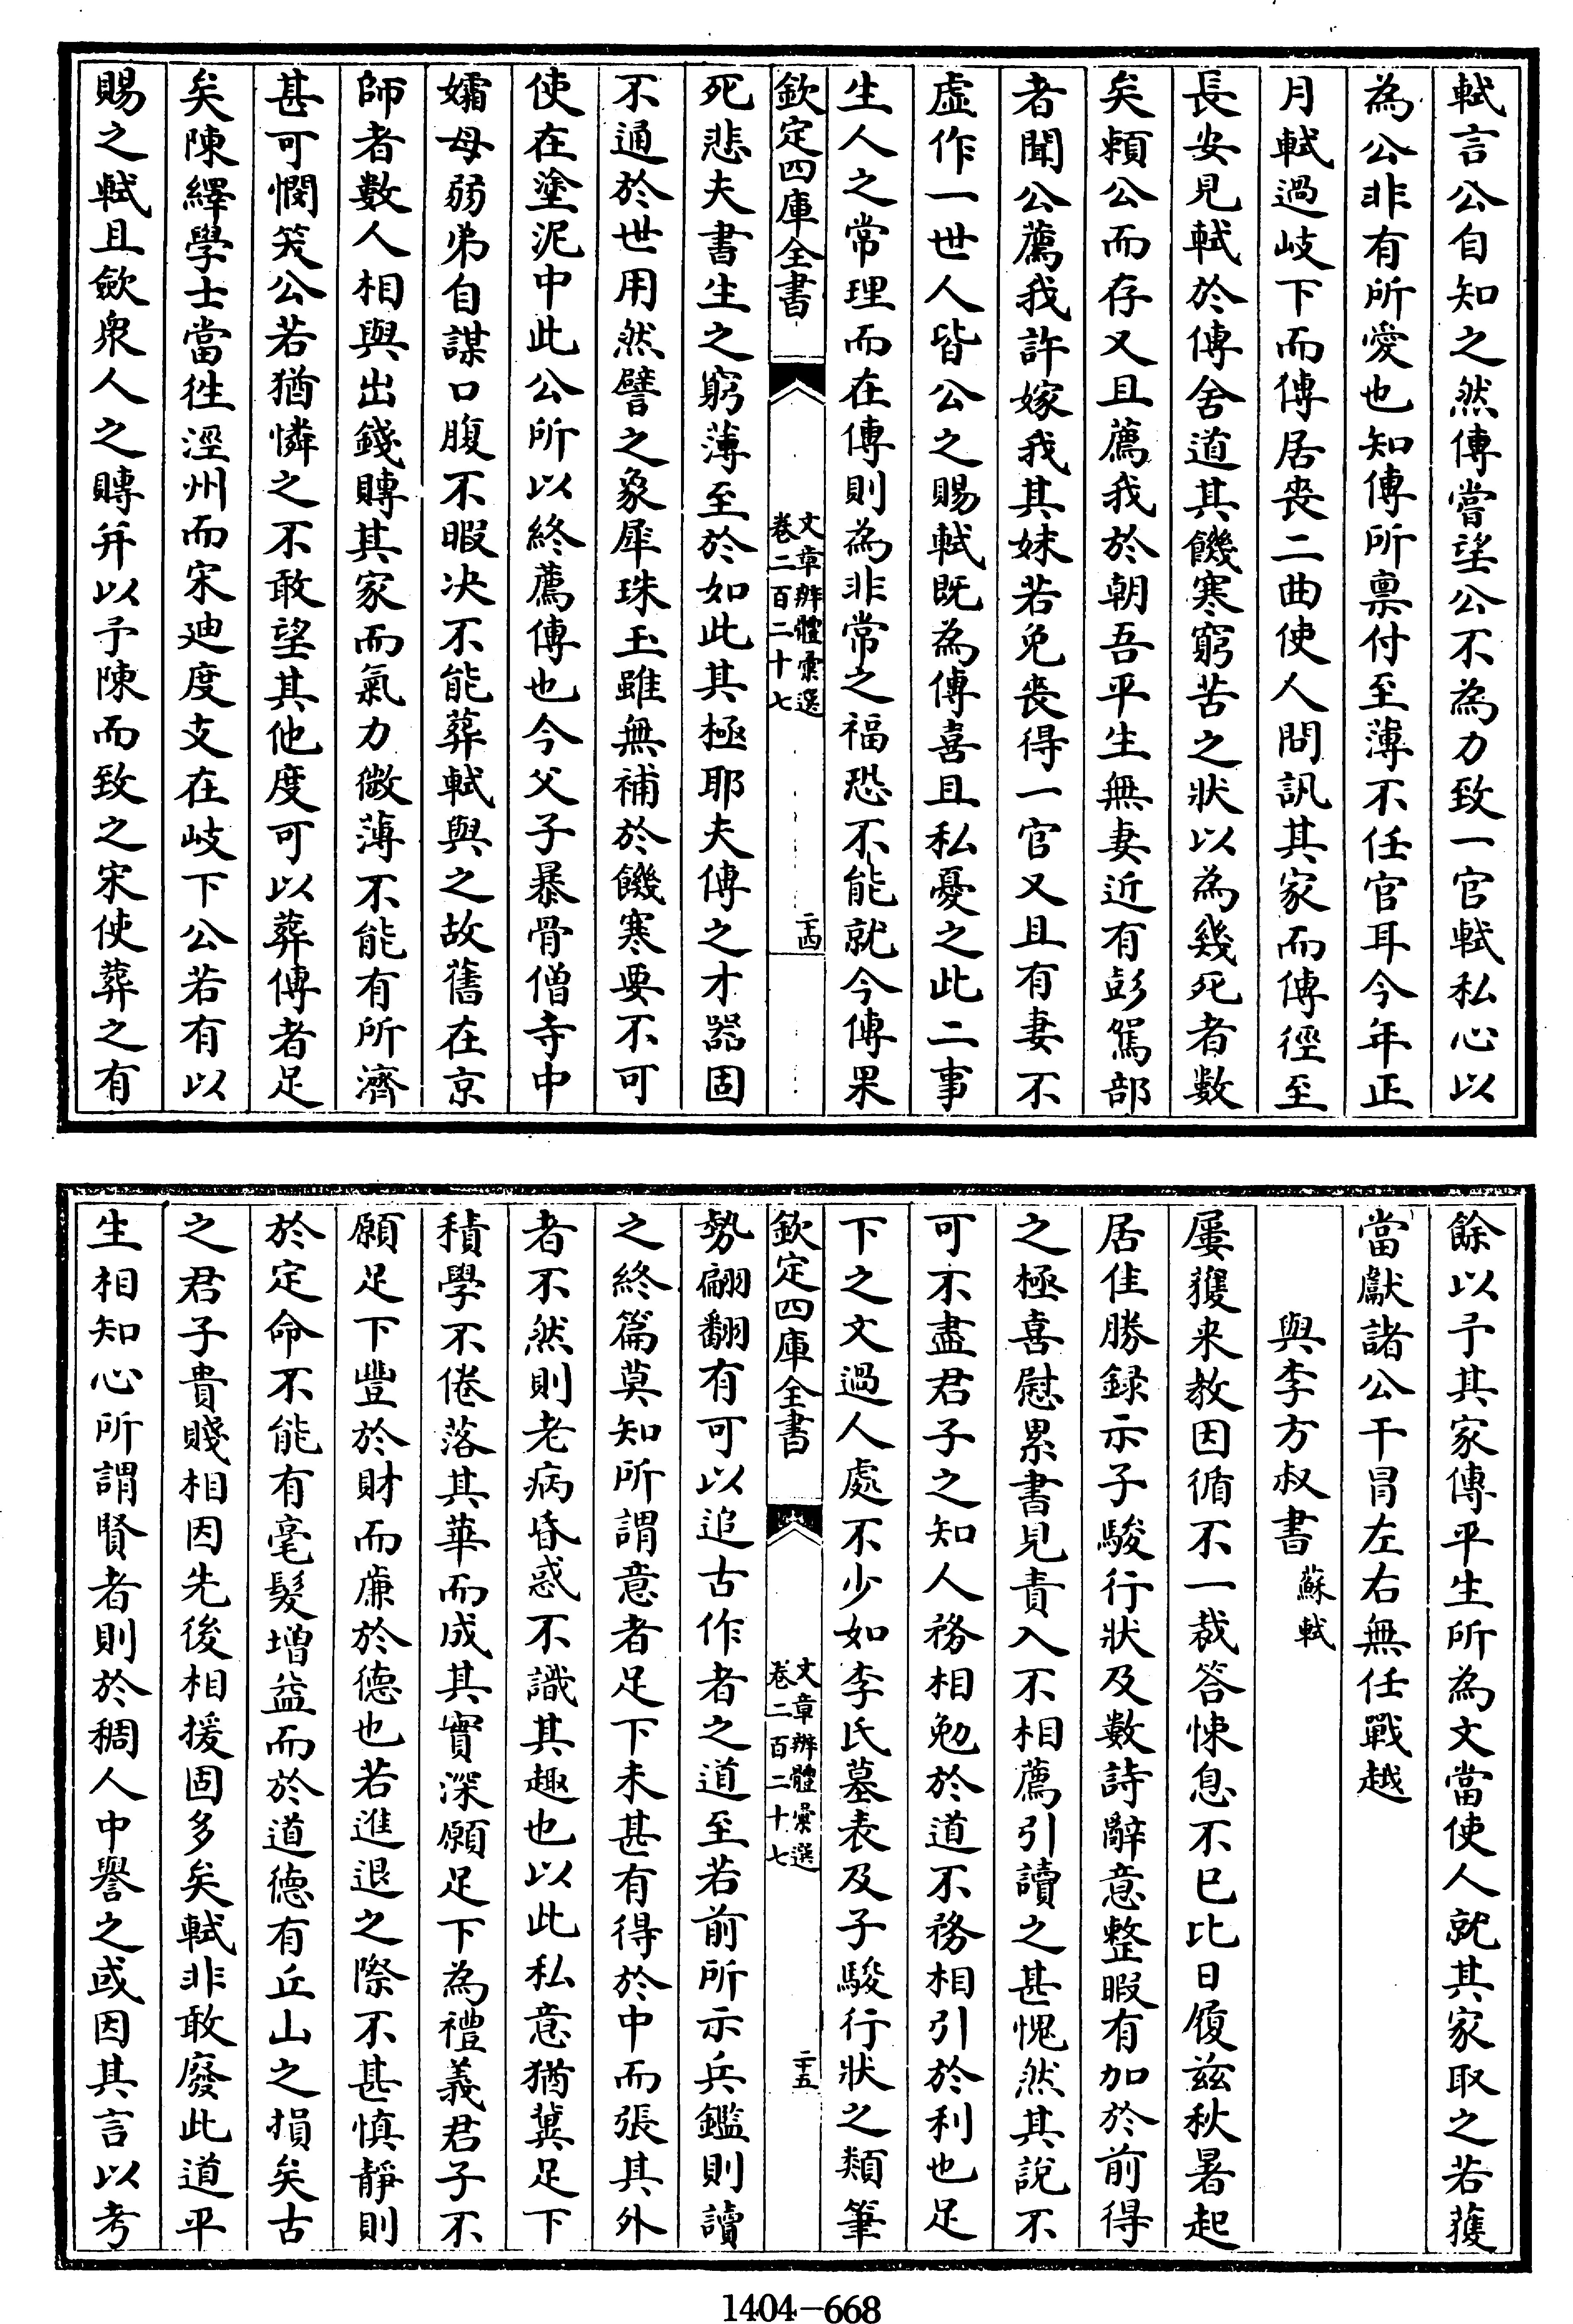 軾言公自知之然傳嘗望公不為力致一官軾私心以
為公非有所愛也知傳所禀付至薄不任官耳今年正
月軾過岐下而傳居喪二曲使人問訊其家而傳徑至
長安見軾於傳舍道其饑寒窮苦之狀以為幾死者數
矣賴公而存又且薦我於朝吾平生無妻近有彭駕部
者聞公薦我許嫁我其妹若免喪得一官又且有妻不
虛作一世人皆公之賜軾既為傳喜且私憂之此二事
生人之常理而在傳則為非常之福恐不能就今傳果
欽定四庫全書
文章辨體彙選
卷二百二十七
二十四
死悲夫書生之窮薄至於如此其極耶夫傳之才器固
不通於世用然譬之象犀珠玉雖無補於饑寒要不可
使在塗泥中此公所以終薦傳也今父子暴骨僧寺中
孀母弱弟自謀口腹不暇决不能葬軾與之故舊在京
師者數人相與出錢賻其家而氣力微薄不能有所濟
甚可憫笑公若猶憐之不敢望其他度可以葬傳者足
矣陳繹學士當徃涇州而宋廸度支在岐下公若有以
賜之軾且斂衆人之賻并以予陳而致之宋使葬之有
餘以予其家傳平生所為文當使人就其家取之若獲
當獻諸公干冒左右無任戰越
與李方叔書 蘇軾
屢獲来教因循不一裁答悚息不已比日履兹秋暑起
居佳勝録示子駿行狀及數詩辭意整暇有加於前得
之極喜慰累書見責入不相薦引讀之甚愧然其說不
可不盡君子之知人務相勉於道不務相引於利也足
下之文過人處不少如李氏墓表及子駿行狀之類筆
欽定四庫全書
文章辨體彙選
卷二百二十七
二十五
勢翩翻有可以追古作者之道至若前所示兵鑑則讀
之終篇莫知所謂意者足下未甚有得於中而張其外
者不然則老病昏惑不識其趣也以此私意猶冀足下
積學不倦落其華而成其實深願足下為禮義君子不
願足下豐於財而㢘於德也若進退之際不甚慎靜則
於定命不能有毫髮增益而於道德有丘山之損矣古
之君子貴賤相因先後相援固多矣軾非敢廢此道平
生相知心所謂賢者則於稠人中譽之或因其言以考
1404-668